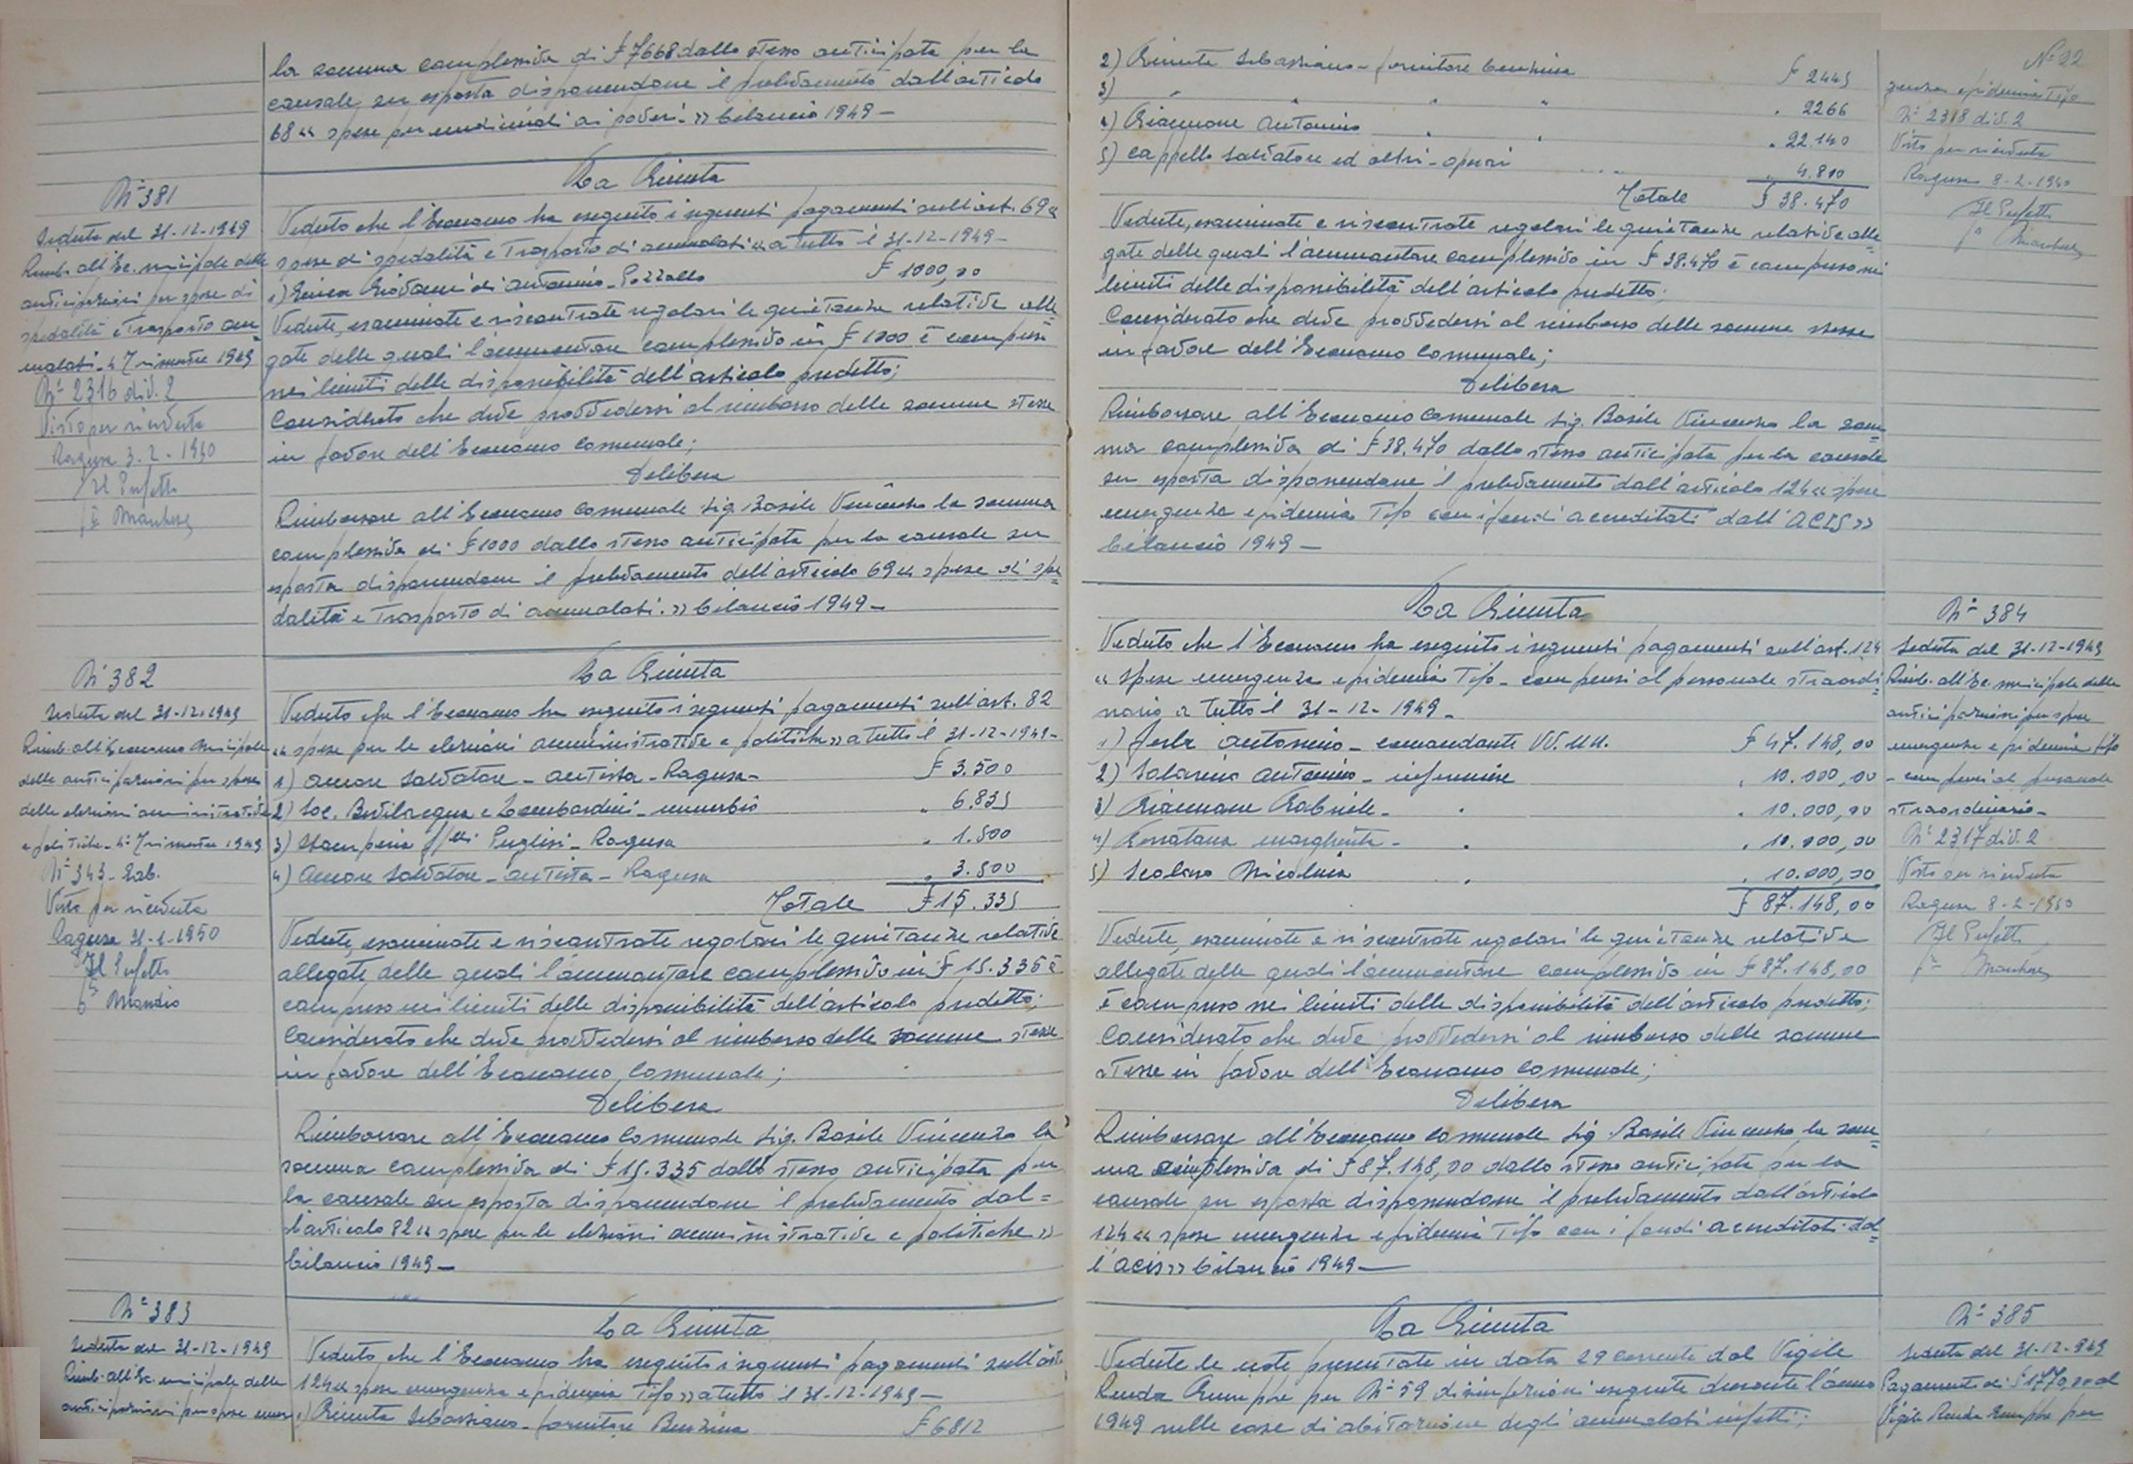 la somma complessiva di £ 7668 dallo stesso anticipata per la
causale su esposta disponendone il prelevamento dall'articolo
68 « spese per medicinali ai poveri » bilancio 1949 —
N° 381
Seduta del 31-12-1949
Rimb. all'Ec. municipale delle
anticipazioni per spese di
spedalità e trasporto am
malati - 4° Trimestre 1949
N° 2316 div. 2
Visto per ricevuta
Ragusa 3-2-1950
Il Prefetto
La Giunta
Veduto che l'Economo ha eseguito i seguenti pagamenti sull'art. 69 «
spese di spedalità e trasporto di ammalati « a tutto il 31-12-1949 —
1) Giovanni di Antonio - Pozzallo £ 1000,00
Vedute, esaminate e riscontrate regolari le quietanze relative alle
gate delle quali l'ammontare complessivo in £ 1000 è compreso
nei limiti delle disponibilità dell'articolo predetto;
Considerato che deve provvedersi al rimborso delle somme stesse
in favore dell'Economo Comunale;
Delibera
Rimborsare all'Economo Comunale Sig. Basile Vincenzo la somma
complessiva di £ 1000 dallo stesso anticipata per la causale su
esposta disponendone il prelevamento dell'articolo 69 « spese di spe=
dalità e trasporto di ammalati. » bilancio 1949 —
N° 382
Seduta del 31-12-1949
Rimb. all'Economo Municipale
delle anticipazioni per spese
delle elezioni amministrative
e politiche - 4° Trimestre 1949
N° 343 - Gab.
Visto per ricevuta
Ragusa 31-1-1950
Il Prefetto
La Giunta
Veduto che l'Economo ha eseguito i seguenti pagamenti sull'art. 82
« spese per le elezioni amministrative e politiche » a tutto il 31-12-1949 —
1) Amore Salvatore - autista - Ragusa — £ 3.500
2) Soc. Bevilacqua e Lombardini - " 6.835
3) Stamperia f.lli Puglisi - Ragusa " 1.500
4) Amore Salvatore - autista - Ragusa " 3.500
Totale £ 15.335
Vedute, esaminate e riscontrate regolari le quietanze relative
allegate delle quali l'ammontare complessivo in £ 15.335 è
compreso nei limiti delle disponibilità dell'articolo predetto;
Considerato che deve provvedersi al rimborso delle somme stesse
in favore dell'Economo Comunale;
Delibera
Rimborsare all'Economo Comunale Sig. Basile Vincenzo la
somma complessiva di £ 15.335 dallo stesso anticipata per
la causale su esposta disponendone il prelevamento dal=
l'articolo 82 « spese per le elezioni amministrative e politiche »
bilancio 1949 —
N° 383
Seduta del 31-12-1949
Rimb. all'Ec. municipale delle
anticipazioni per spese emer
La Giunta
Veduto che l'Economo ha eseguito i seguenti pagamenti sull'art.
124 « spese emergenza epidemia Tifo » a tutto il 31-12-1949 —
1) Giunta Sebastiano - fornitore Benzina £ 6812
N° 22
2) Giunta Sebastiano - fornitore benzina £ 2445
3) " " " " " 2266
4) Giannone Antonino " " " 22.140
5) Cappello Salvatore ed altri - operai " 4.810
Totale £ 38.470
genza epidemia Tifo
N° 2318 div. 2
Visto per ricevuta
Ragusa 8-2-1950
Il Prefetto
Vedute, esaminate e riscontrate regolari le quietanze relative alle=
gate delle quali l'ammontare complessivo in £ 38.470 è compreso nei
limiti delle disponibilità dell'articolo predetto;
Considerato che deve provvedersi al rimborso delle somme stesse
in favore dell'Economo Comunale;
Delibera
Rimborsare all'Economo Comunale Sig. Basile Vincenzo la som=
ma complessiva di £ 38.470 dallo stesso anticipata per la causale
su esposta disponendone il prelevamento dall'articolo 124 « spese
emergenza epidemia Tifo con i fondi accreditati dall'ACIS »
bilancio 1949 —
La Giunta
Veduto che l'Economo ha eseguito i seguenti pagamenti sull'art. 124
« spese emergenza epidemia Tifo - compensi al personale straordi=
nario a tutto il 31-12-1949 —
1) Antonino - comandante VV.UU. £ 47.148,00
2) Antonino - infermiere " 10.000,00
3) Giannone Gabriele - " " 10.000,00
4) Margherita - " " 10.000,00
5) Nicolina " " 10.000,00
£ 87.148,00
N° 384
Seduta del 31-12-1949
Rimb. all'Ec. municipale delle
anticipazioni per spese
emergenza epidemia tifo
- compensi al personale
straordinario -
N° 2317 div. 2
Visto per ricevuta
Ragusa 8-2-1950
Il Prefetto
Vedute, esaminate e riscontrate regolari le quietanze relative
allegate delle quali l'ammontare complessivo in £ 87.148,00
è compreso nei limiti delle disponibilità dell'articolo predetto;
Considerato che deve provvedersi al rimborso delle somme
stesse in favore dell'Economo Comunale;
Delibera
Rimborsare all'Economo Comunale Sig. Basile Vincenzo la som=
ma complessiva di £ 87.148,00 dallo stesso anticipata per la
causale su esposta disponendone il prelevamento dall'articolo
124 « spese emergenza epidemia Tifo con i fondi accreditati dal=
l'acis » bilancio 1949 —
La Giunta
Vedute le note presentate in data 29 corrente dal Vigile
Renda per N° 59 disinfezioni eseguite durante l'anno
1949 nelle case di abitazione degli ammalati infetti;
N° 385
Seduta del 31-12-949
Pagamento di £ 1770,00 al
Vigile Renda per